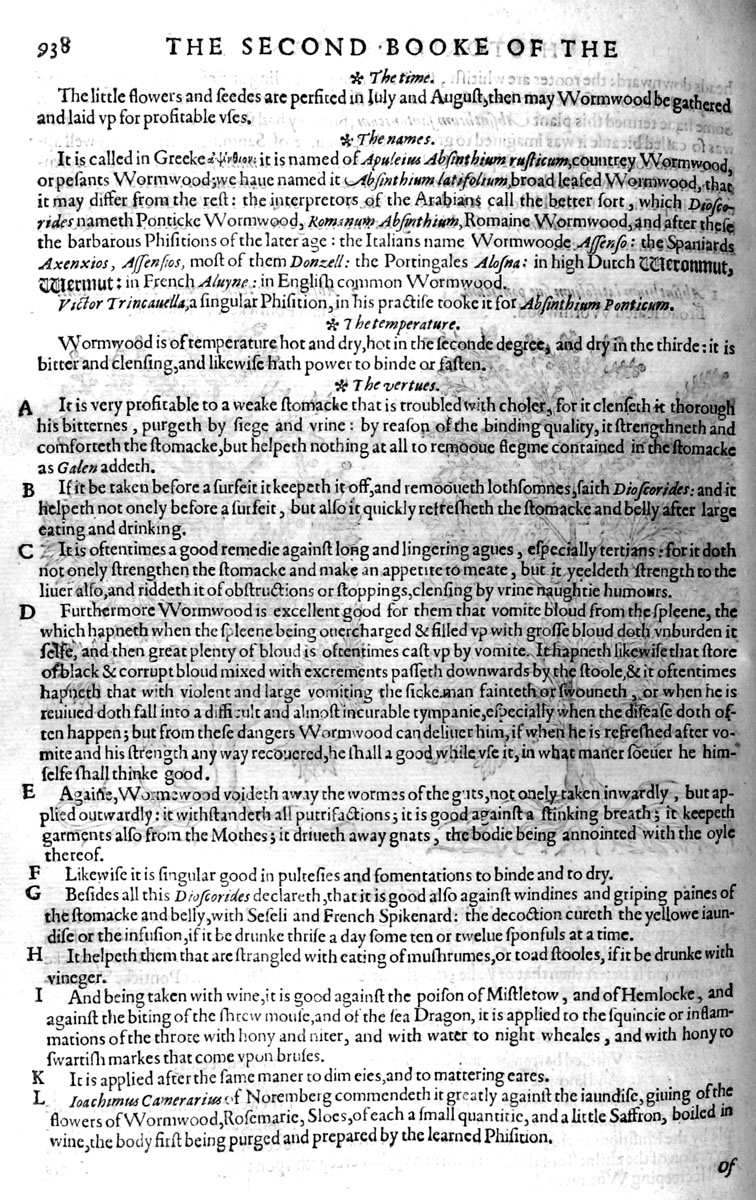 938 THE SECOND BOOKE OF THE
✻ The time.
The little flowers and ſeedes are perfited in Iuly and Auguſt, then may Wormwood be gathered
and laid vp for profitable vſes.
✻ The names.
It is called in Greeke ἀψίνθιον: it is named of Apuleius Abſinthium ruſticum, countrey Wormwood,
or peſants Wormwood; we haue named it Abſinthium latifolium, broad leafed Wormwood, that
it may differ from the reſt: the interpretors of the Arabians call the better ſort, which Dioſco-
rides nameth Ponticke Wormwood, Romanum Abſinthium, Romaine Wormwood, and after theſe
the barbarous Phiſitions of the later age: the Italians name Wormwoode Aſſenſo: the Spaniards
Axenxios, Aſſenſios, moſt of them Donzell: the Portingales Aloſna: in high Dutch Weronmut,
Wermut: in French Aluyne: in Engliſh common Wormwood.
Victor Trincauella, a ſingular Phiſition, in his practiſe tooke it for Abſinthium Ponticum.
✻ The temperature.
Wormwood is of temperature hot and dry, hot in the ſeconde degree, and dry in the thirde: it is
bitter and clenſing, and likewiſe hath power to binde or faſten.
✻ The vertues.
A It is very profitable to a weake ſtomacke that is troubled with choler, for it clenſeth it thorough
his bitternes, purgeth by ſiege and vrine: by reaſon of the binding quality, it ſtrengthneth and
comforteth the ſtomacke, but helpeth nothing at all to remooue flegme contained in the ſtomacke
as Galen addeth.
B If it be taken before a ſurfeit it keepeth it off, and remooueth lothſomnes, ſaith Dioſcorides: and it
helpeth not onely before a ſurfeit, but alſo it quickly refreſheth the ſtomacke and belly after large
eating and drinking.
C It is oftentimes a good remedie againſt long and lingering agues, eſpecially tertians: for it doth
not onely ſtrengthen the ſtomacke and make an appetite to meate, but it yeeldeth ſtrength to the
liuer alſo, and riddeth it of obſtructions or ſtoppings, clenſing by vrine naughtie humours.
D Furthermore Wormwood is excellent good for them that vomite bloud from the ſpleene, the
which hapneth when the ſpleene being ouercharged & filled vp with groſſe bloud doth vnburden it
ſelfe, and then great plenty of bloud is oftentimes caſt vp by vomite. It hapneth likewiſe that ſtore
of black & corrupt bloud mixed with excrements paſſeth downwards by the ſtoole, & it oftentimes
hapneth that with violent and large vomiting the ſicke man fainteth or ſwouneth, or when he is
reuiued doth fall into a difficult and almoſt incurable tympanie, eſpecially when the diſeaſe doth of-
ten happen; but from theſe dangers Wormwood can deliuer him, if when he is refreſhed after vo-
mite and his ſtrength any way recouered, he ſhall a good while vſe it, in what maner ſoeuer he him-
ſelfe ſhall thinke good.
E Againe, Wormewood voideth away the wormes of the guts, not onely taken inwardly, but ap-
plied outwardly: it withſtandeth all putrifactions; it is good againſt a ſtinking breath; it keepeth
garments alſo from the Mothes; it driueth away gnats, the bodie being annointed with the oyle
thereof.
F Likewiſe it is ſingular good in pulteſies and fomentations to binde and to dry.
G Beſides all this Dioſcorides declareth, that it is good alſo againſt windines and griping paines of
the ſtomacke and belly, with Seſeli and French Spikenard: the decoction cureth the yellowe iaun-
diſe or the infuſion, if it be drunke thriſe a day ſome ten or twelue ſponfuls at a time.
H It helpeth them that are ſtrangled with eating of muſhrumes, or toad ſtooles, if it be drunke with
vineger.
I And being taken with wine, it is good againſt the poiſon of Miſtletow, and of Hemlocke, and
againſt the biting of the ſhrew mouſe, and of the ſea Dragon, it is applied to the ſquincie or inflam-
mations of the throte with hony and niter, and with water to night wheales, and with hony to
ſwartiſh markes that come vpon bruſes.
K It is applied after the ſame maner to dim eies, and to mattering eares.
L Ioachimus Camerarius of Noremberg commendeth it greatly againſt the iaundiſe, giuing of the
flowers of Wormwood, Roſemarie, Sloes, of each a ſmall quantitie, and a little Saffron, boiled in
wine, the body firſt being purged and prepared by the learned Phiſition.
Of